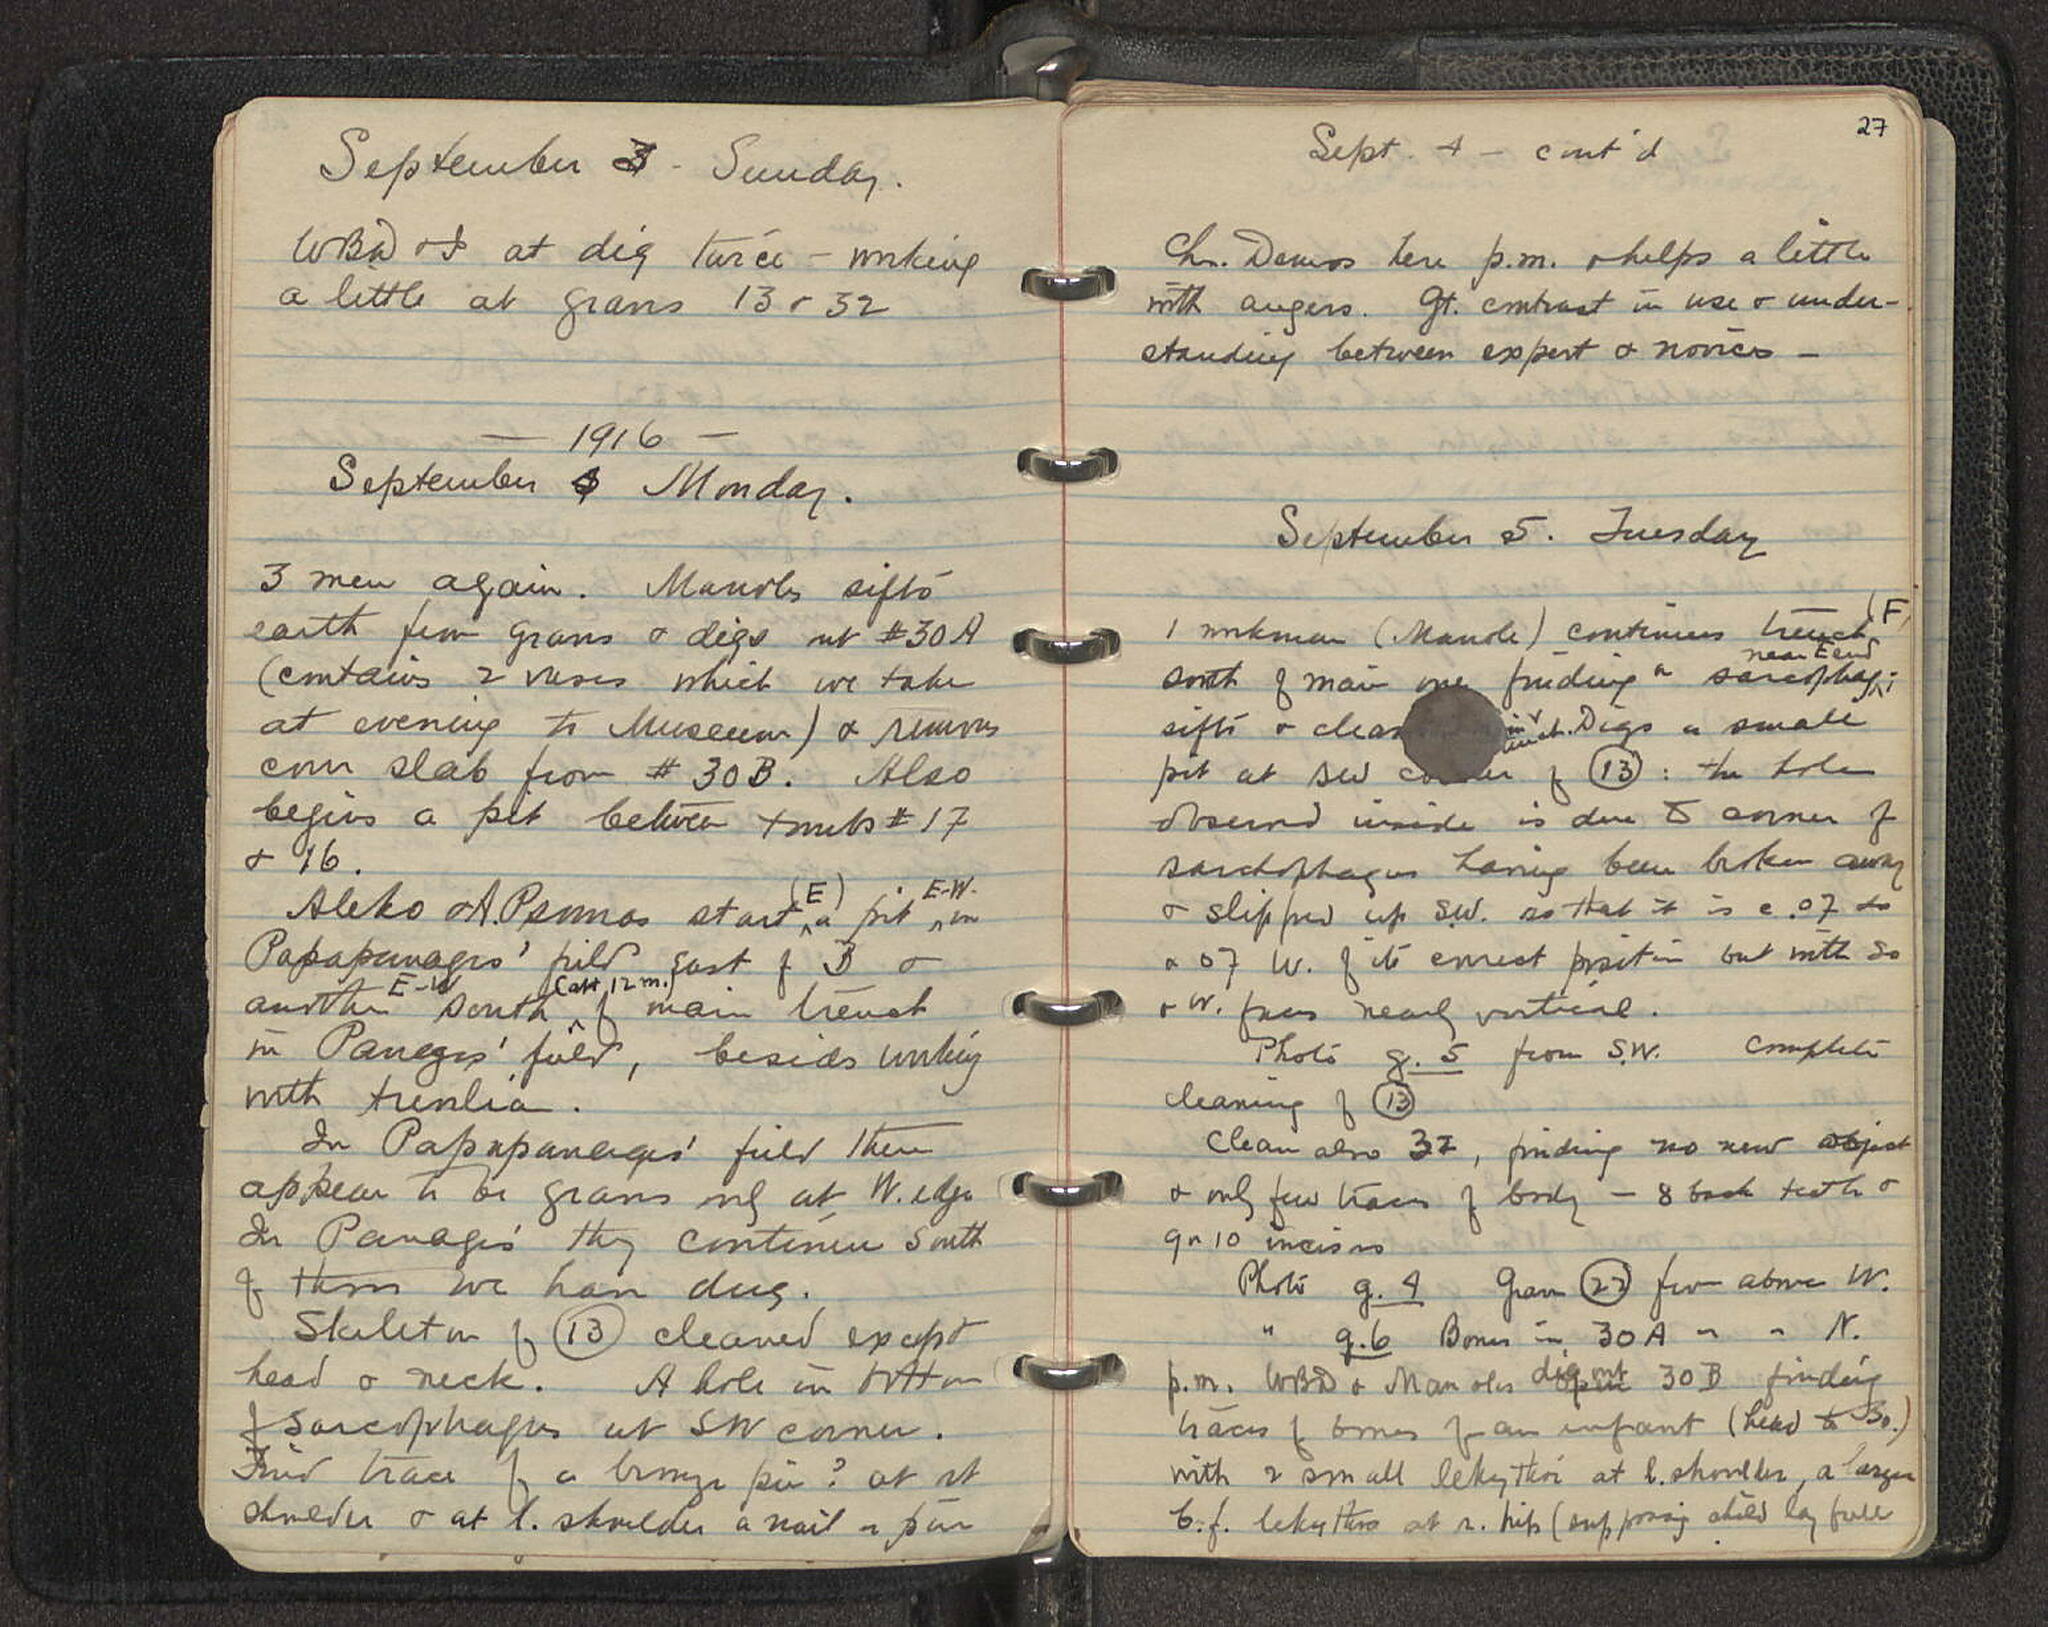 September 3 - Sunday.
WBD & I at dig twice - working
a little at graves 13 & 32
- 1916 -
September 4 Monday.
3 men again. Manoles sifts
earth from graves & digs out #30A
(contains 2 vases which we take
at evening to Museum) & removes
cover slab from #30B. Also
begins a pit between tombs #17
& 16.
Aleko & A. Psomas start (E) a pit E-W. in
Papapanages' field east of B &
another E-W south (at 12 m.) of main trench
in Panages' field, besides working
with
In Papapanages' field there
appear to be graves only at W. edge
In Panages' they continue south
of those we have dug.
Skeleton of 13 cleaned except
head & neck. A hole in bottom
of sarcophagus at SW corner.
Find trace of a bronze pin? at rt
shoulder & at l. shoulder a nail or pin
27
Sept. 4 - cont'd
Chr. Demos here p.m. & helps a little
with augers. Gt. contrast in use & under-
standing between expert & novices -
September 5. Tuesday
1 workman (Manole) continues trench (F,
south of main one finding a sarcophag; near E end
sifts & clea Digs a small
pit at SW corner of 13: the hole
observed inside is due to corner of
sarchophagus having been broken away
& slipped up S.W. so that it is c .07 so
& 07 W. of its correct position but with So
& W. faces nearly vertical.
Photo g. 5 from S.W. complete
cleaning of 13
Clean also 32, finding no new object
& only few traces of body - 8 back teeth &
9 or 10 incisors
Photo g. 4 Grave 22 from above W.
" g. 6 Bones in 30A " " N.
p.m. WBD & Manoles dig out 30B finding
traces of bones of an infant (head to So.)
with 2 small lekythoi at l. shoulder, a larger
b.f. lekythos at r. hip (supposing child lay full